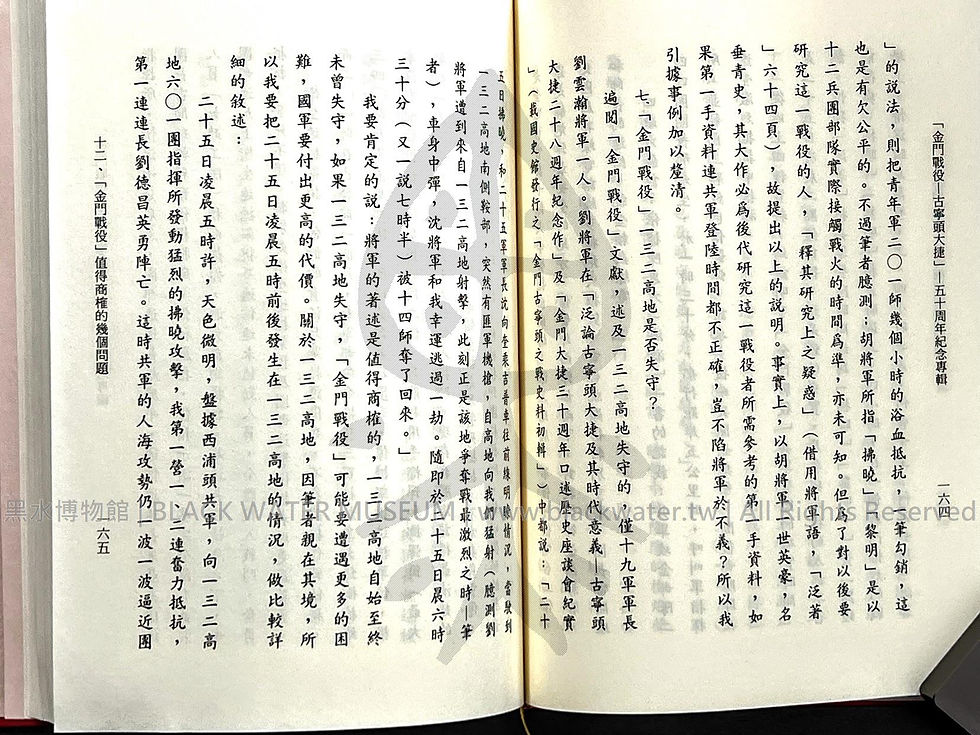 「金門戰役—古寧頭大捷」—五十周年紀念專輯
一六四
」的說法，則把青年軍二〇一師幾個小時的浴血抵抗，一筆勾銷，這
也是有欠公平的。不過筆者臆測；胡將軍所指「拂曉」「黎明」是以
十二兵團部隊實際接觸戰火的時間為準，亦未可知。但為了對以後要
研究這一戰役的人，「釋其研究上之疑惑」（借用將軍語，「泛著
」六十四頁），故提出以上的說明。事實上，以胡將軍一世英豪，名
垂青史，其大作必為後代研究這一戰役者所需參考的第一手資料，如
果第一手資料連共軍登陸時間都不正確，豈不陷將軍於不義？所以我
引據事例加以釐清。
七、「金門戰役」一三二高地是否失守？
遍閱「金門戰役」文獻，述及一三二高地失守的，僅十九軍軍長
劉雲瀚將軍一人。劉將軍在「泛論古寧頭大捷及其時代意義—古寧頭
大捷二十八週年紀念作」及「金門大捷三十週年口述歷史座談會紀實
」（載國史館發行之「金門古寧頭之戰史料初輯」）中都說：「二十
五日拂曉，和二十五軍軍長沈向奎乘吉普車往前線明瞭情況，當駛到
一三二高地南側鞍部，突然有匪軍機槍，自高地向我們猛射（臆測劉
將軍遭到來自一三二高地射擊，此刻正是該地爭奪戰最激烈之時—筆
者），車身中彈，沈將軍和我幸運逃過一劫。隨即於二十五日晨六時
三十分（又一說七時半）被十四師奪了回來。」
我要肯定的說：將軍的著述是值得商榷的，一三二高地自始至終
未曾失守，如果一三二高地失守，「金門戰役」可能要遭遇更多的困
難，國軍要付出更高的代價。關於一三二高地，因筆者親在其境，所
以我要把二十五日凌晨五時前後發生在一三二高地的情況，做比較詳
細的敘述：
二十五日凌晨五時許，天色微明，盤據西浦頭共軍，向一三二高
地六〇一團指揮所發動猛烈的拂曉攻擊，我第一營一、二連奮力抵抗，
第一連連長劉德昌英勇陣亡。這時共軍的人海攻勢仍一波一波逼近團
十二、「金門戰役」值得商榷的幾個問題
一六五
黑水博物館 | BLACK WATER MUSEUM | www.blackwater.tw | All Rights Reserved